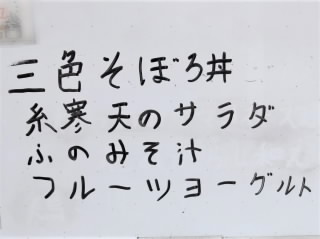 三色そぼろ丼
糸寒天のサラダ
ふのみそ汁
フルーツヨーグルト